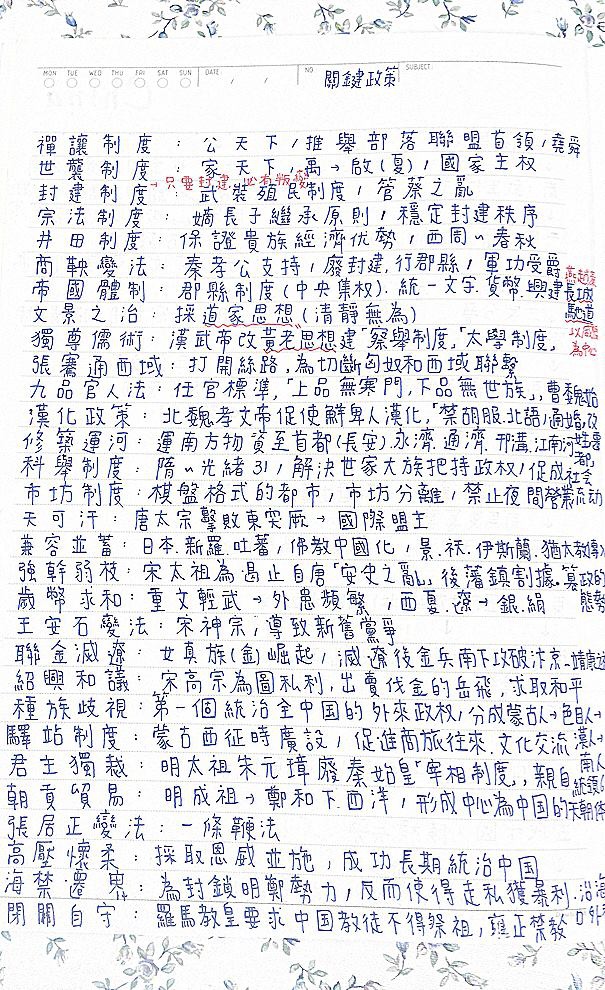 MON TUE WED THU FRI SAT SUN DATE: / / NO. SUBJECT:
關鍵政策
禪讓制度：公天下，推舉部落聯盟首領，堯舜
世襲制度：家天下，禹→啟(夏)，國家主權
→只要封建，必有叛變
封建制度：武裝殖民制度，管蔡之亂
宗法制度：嫡長子繼承原則，穩定封建秩序
井田制度：保證貴族經濟優勢，西周~春秋
商鞅變法：秦孝公支持，廢封建，行郡縣，軍功受爵
帝國體制：郡縣制度(中央集權)．統一文字．貨幣．興建長城 馳道
以咸陽為中心
文景之治：採道家思想(清靜無為)
獨尊儒術：漢武帝改黃老思想建「察舉制度，「太學制度，
張騫通西域：打開絲路，為切斷匈奴和西域聯繫
九品官人法：任官標準，「上品無寒門，下品無世族」，曹魏始
漢化政策：北魏孝文帝促使鮮卑人漢化，「禁胡服．北語，通婚，改姓，遷都
修築運河：運南方物資至首都(長安)．永濟．通濟．邗溝．江南河
科舉制度：隋~光緒31，解決世家大族把持政權，促成社會流動
市坊制度：棋盤格式的都市，市坊分離，禁止夜間營業
天可汗：唐太宗擊敗東突厥→國際盟主
兼容並蓄：日本．新羅．吐蕃，佛教中國化，景．祆．伊斯蘭．猶太教傳入
強幹弱枝：宋太祖為遏止自唐「安史之亂」後藩鎮割據．篡政的態勢
歲幣求和：重文輕武→外患頻繁，西夏．遼→銀．絹
王安石變法：宋神宗，導致新舊黨爭
聯金滅遼：女真族(金)崛起，滅遼後金兵南下攻破汴京－靖康
紹興和議：宋高宗為圖私利，出賣伐金的岳飛，求取和平
種族歧視：第一個統治全中國的外來政權，分成蒙古人→色目人→漢人→南人
驛站制度：蒙古西征時廣設，促進商旅往來．文化交流
君主獨裁：明太祖朱元璋廢秦始皇「宰相制度」，親自統領
朝貢貿易：明成祖→鄭和下西洋，形成中心為中國的天朝體
張居正變法：一條鞭法
高壓懷柔：採取恩威並施，成功長期統治中國
海禁遷界：為封鎖明鄭勢力，反而使得走私獲暴利．沿海
閉關自守：羅馬教皇要求中國教徒不得祭祖，雍正禁教